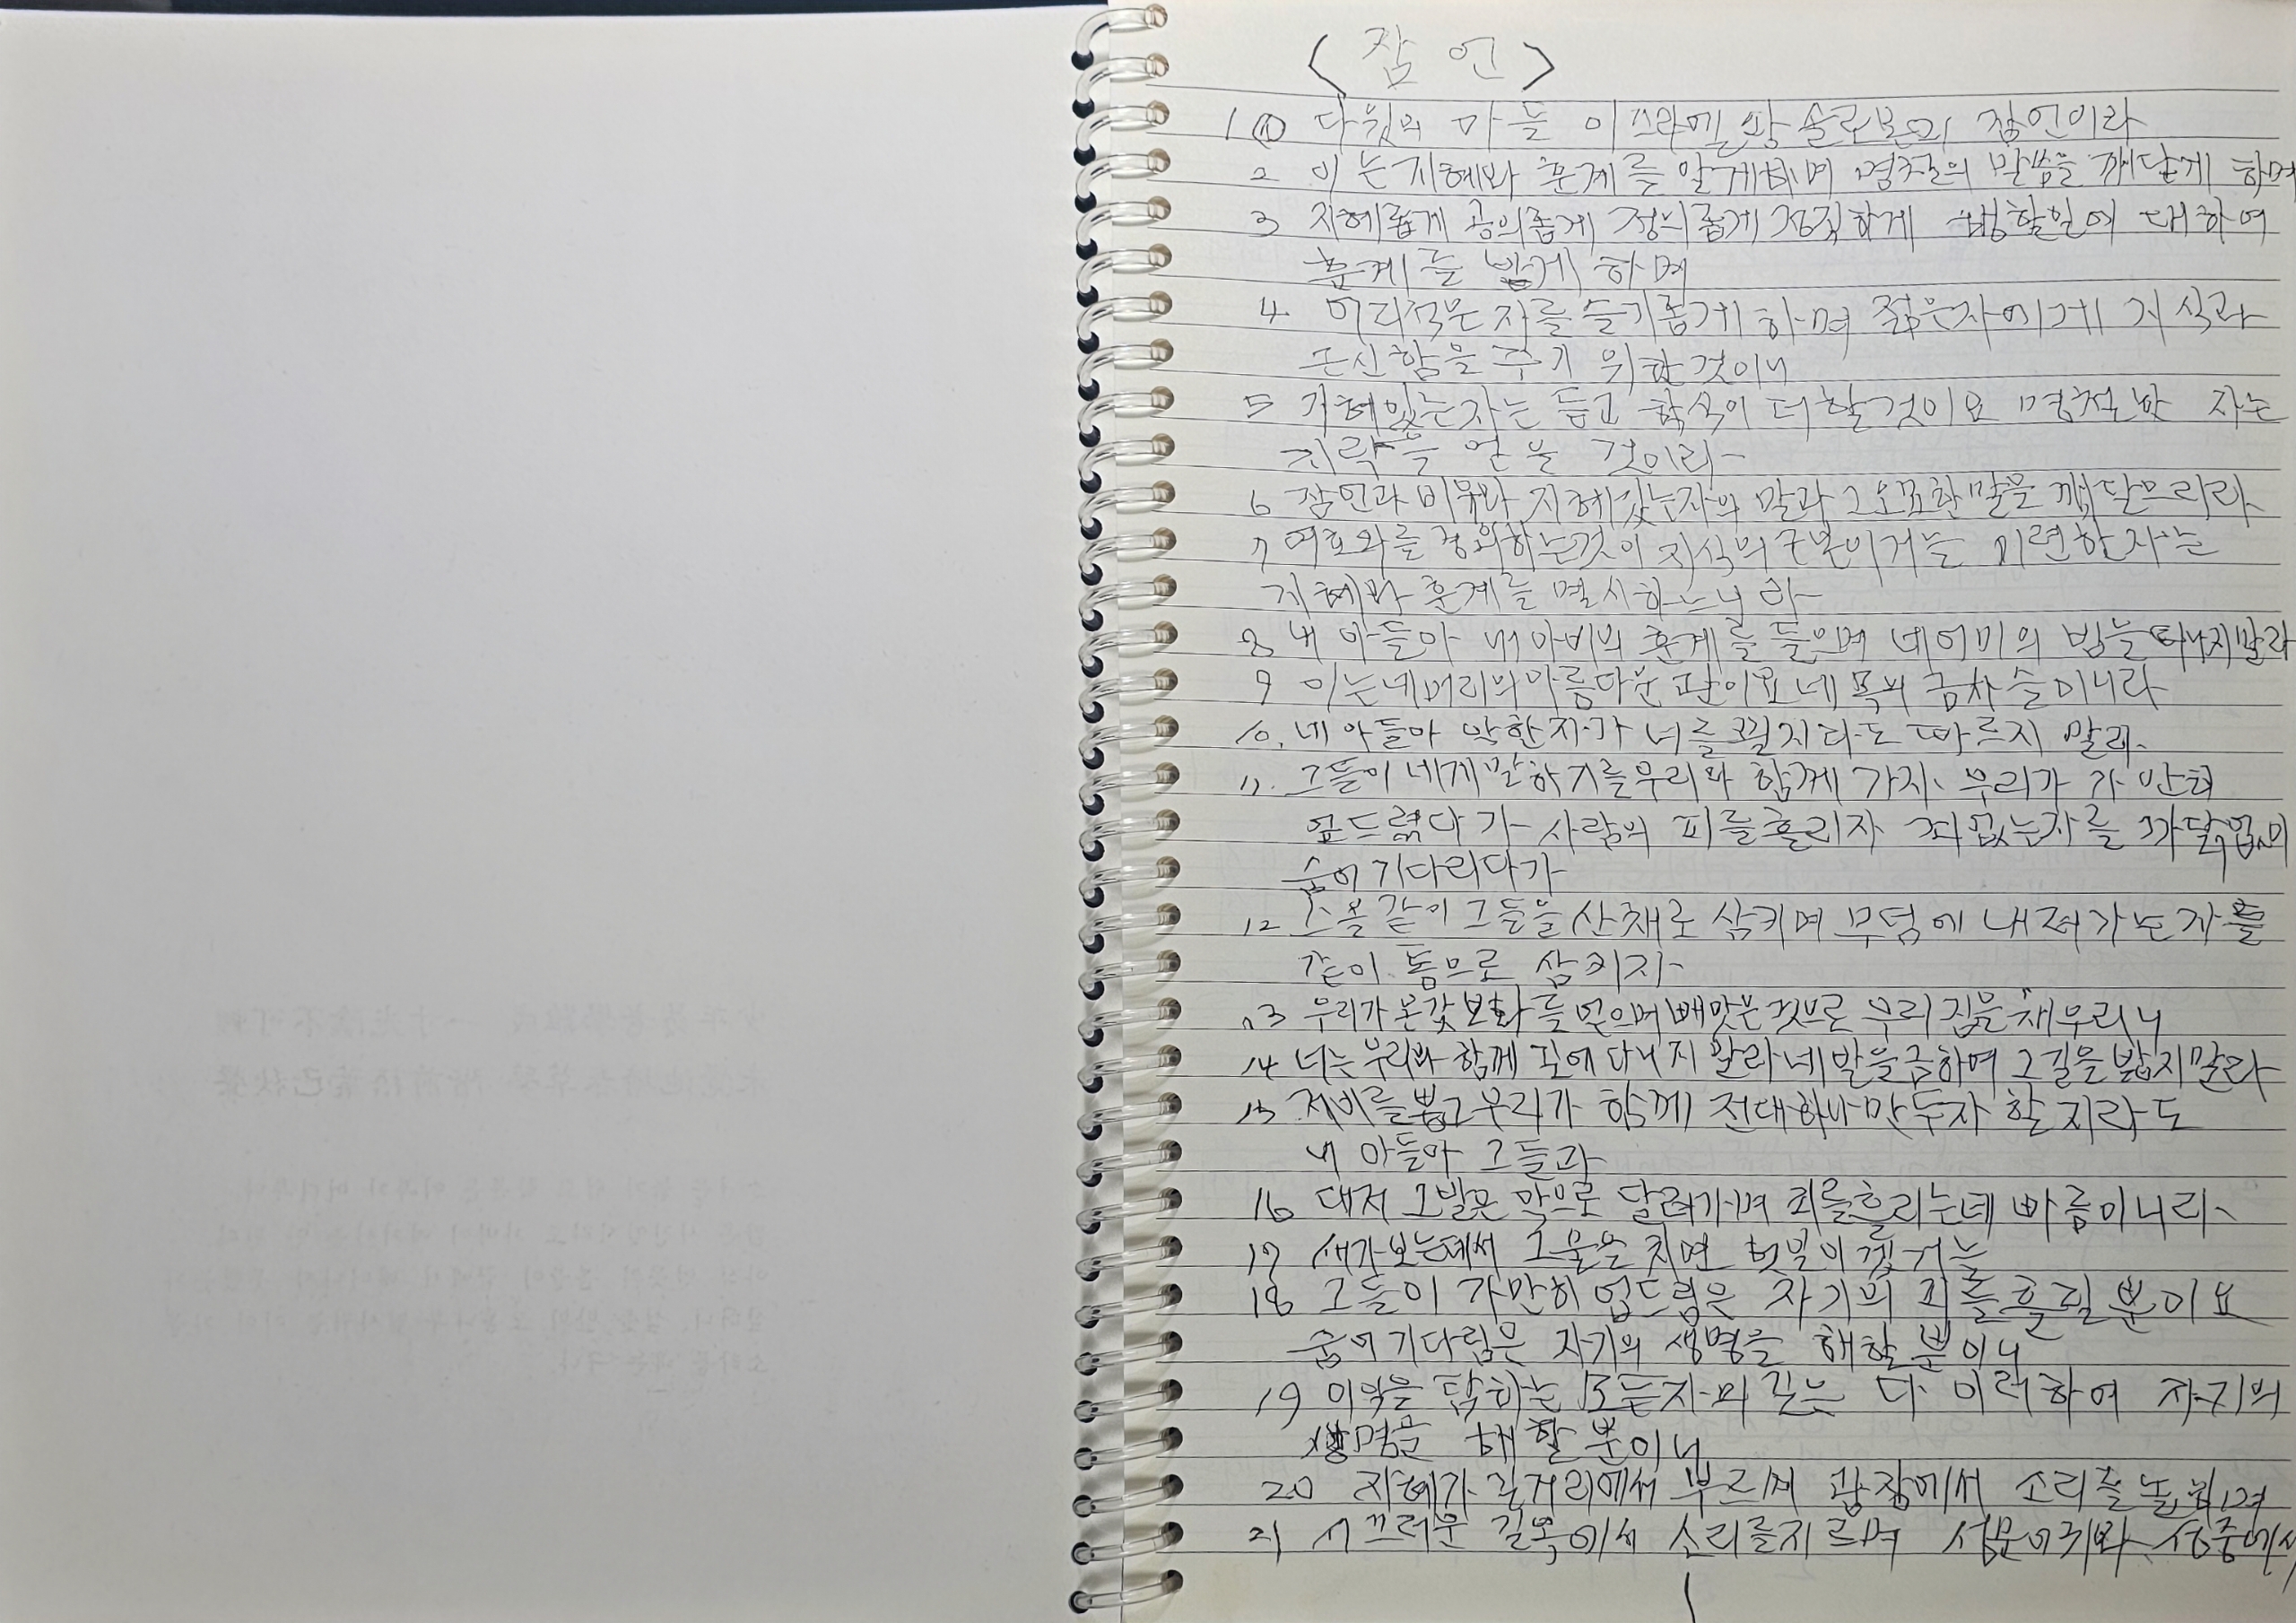 <잠 언>
1 ① 다윗의 아들 이스라엘 왕 솔로몬의 잠언이라
2 이는 지혜와 훈계를 알게하며 명철의 말씀을 깨닫게 하며
3 지혜롭게 공의롭게 정의롭게 정직하게 행할일에 대하여
훈계를 받게 하며
4. 어리석은 자를 슬기롭게 하며 젊은자에게 지식과
근신함을 주기 위한것이니
5 지혜있는자는 듣고 학식이 더할것이요 명철한 자는
지략을 얻을 것이라
6 잠언과 비유와 지혜있는자의 말과 그 오묘한 말을 깨달으리라
7 여호와를 경외하는것이 지식의 근본이거늘 미련한 자는
지혜와 훈계를 멸시하느니라
8 내 아들아 네 아비의 훈계를 들으며 네 어미의 법을 떠나지말라
9 이는 네 머리의 아름다운 관이요 네 목의 금사슬이니라
10. 내 아들아 악한자가 너를 꾈지라도 따르지 말라
11. 그들이 네게 말하기를 우리와 함께 가자 우리가 가만히
엎드렸다가 사람의 피를 흘리자 죄없는자를 까닭없이
숨어 기다리다가
12 스올 같이 그들을 산채로 삼키며 무덤에 내려가는자를
같이 통으로 삼키자
13 우리가 온갖 보화를 얻으며 빼앗은 것으로 우리 집을 채우리니
14 너는 우리와 함께 길에 다니지 말라 네 발을 금하여 그 길을 밟지말라
15 제비를 뽑고 우리가 함께 전대 하나만 두자 할지라도
내 아들아 그들과
16 대저 그 발은 악으로 달려가며 피를 흘리는데 빠름이니라
17 새가 보는데서 그물을 치면 헛일이겠거늘
18 그들이 가만히 엎드림은 자기의 피를 흘릴 뿐이요
숨어 기다림은 자기의 생명을 해할 뿐이니
19 이익을 탐하는 모든자의 길은 다 이러하여 자기의
생명을 해할 뿐이니
20 지혜가 길거리에서 부르며 광장에서 소리를 높이며
21 시끄러운 길목에서 소리를 지르며 성문어귀와 성중에서